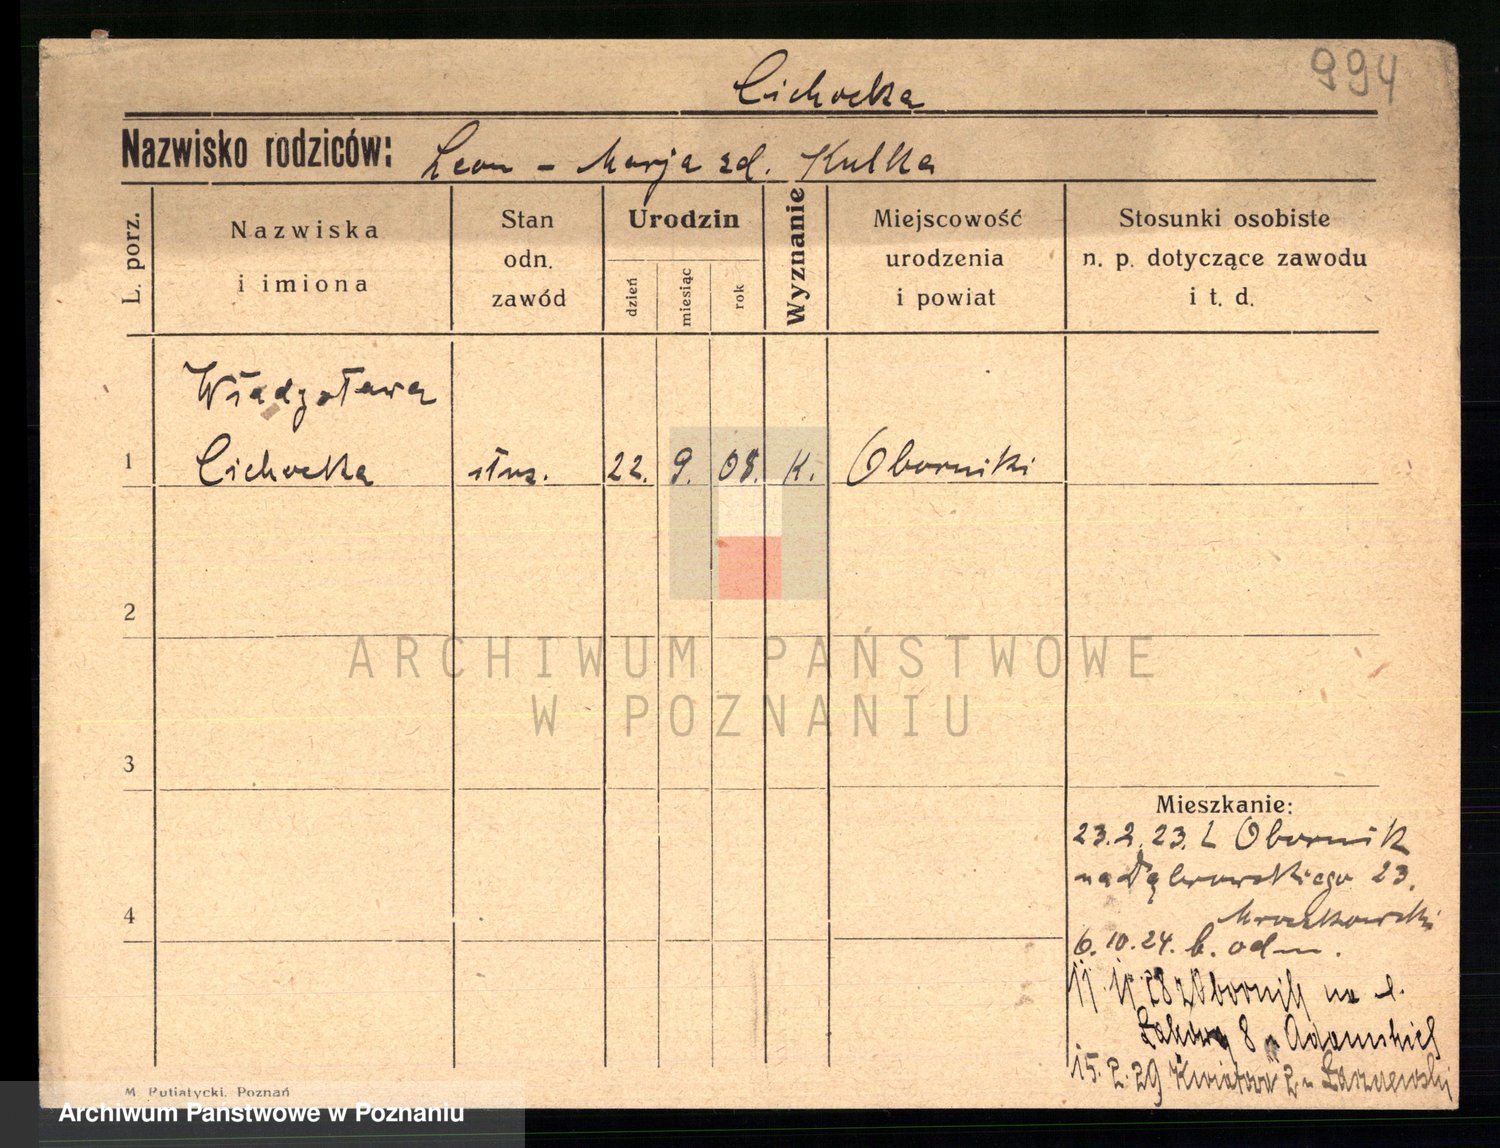 994
Cichocka
Nazwisko rodziców: Leon - Marja zd. Kulka
L. porz.
Nazwiska
i imiona
Stan
odn.
zawód
Urodzin
dzień
miesiąc
rok
Wyznanie
Miejscowość
urodzenia
i powiat
Stosunki osobiste
n. p. dotyczące zawodu
i t. d.
Władysława
1 Cichocka służ. 22. 9. 08. K. Oborniki
2
3
4
Mieszkanie:
23.2.23. z Obornik
na Dąbrowskiego 23.
Mroczkowski
6.10.24. b. odm.
11.11.28 z Obornik na
Łąkową 8 u Adamskich
15.2.29 Kwiatowa 2 u
M. Putiatycki, Poznań
ARCHIWUM PAŃSTWOWE
W POZNANIU
Archiwum Państwowe w Poznaniu